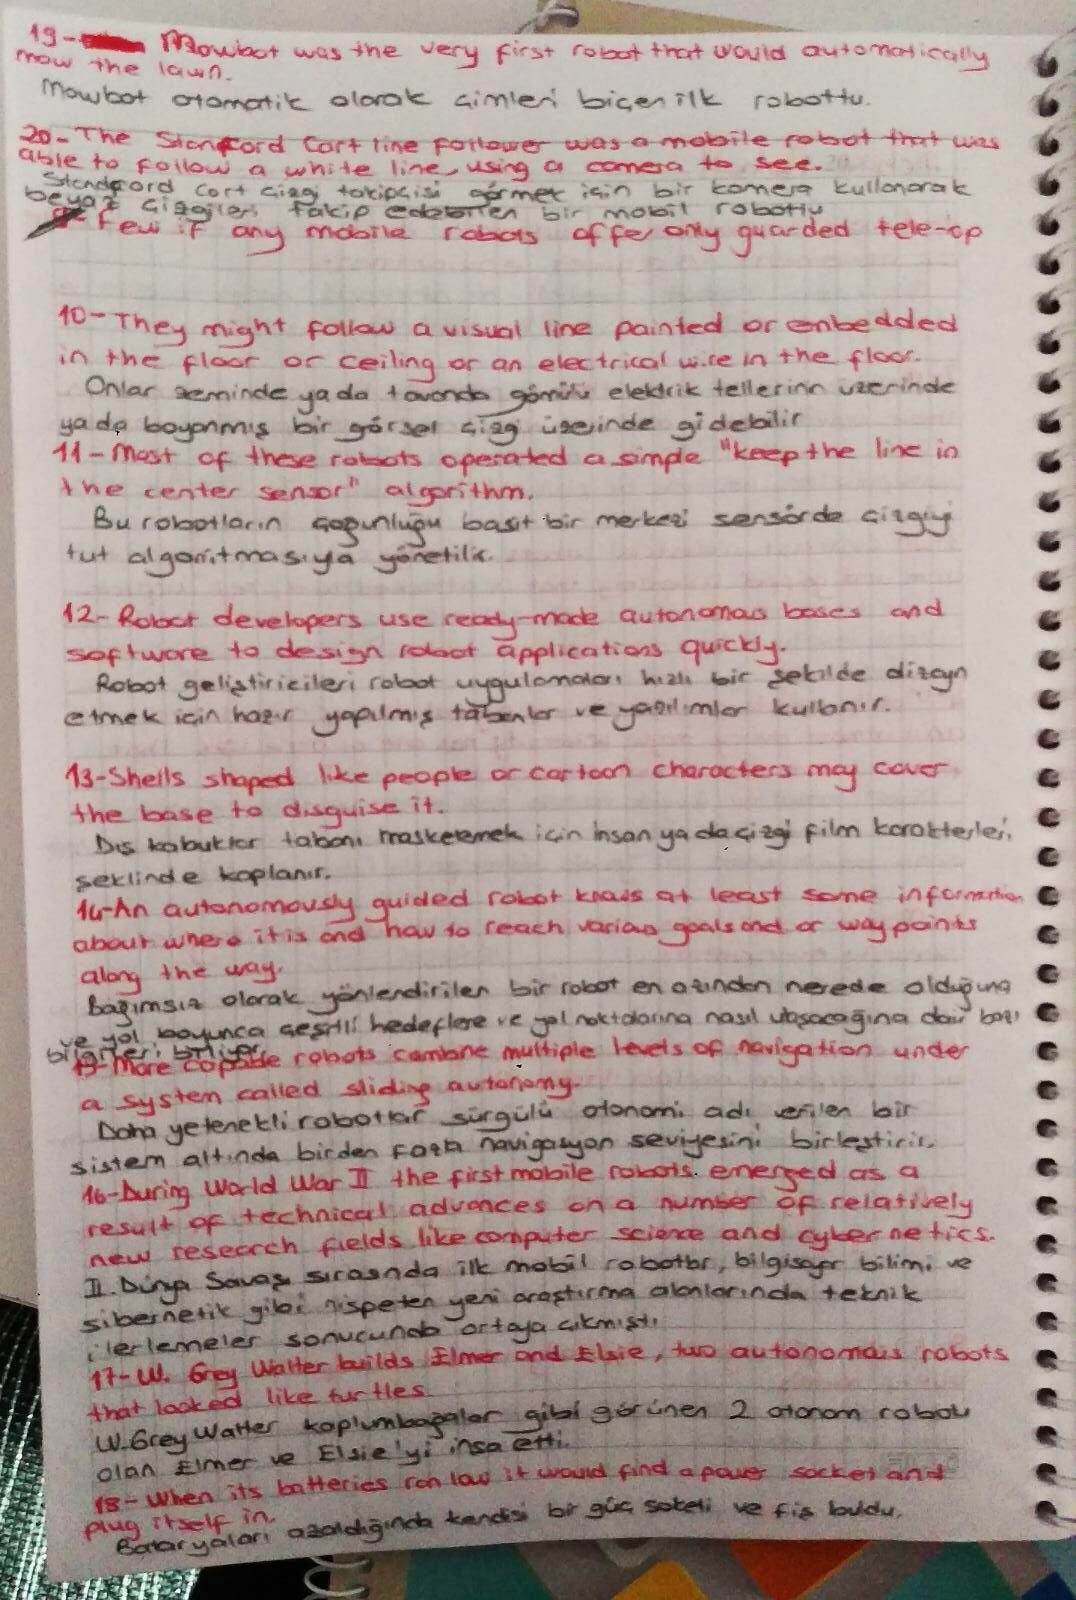 19- Mowbot was the very first robot that would automatically
mow the lawn.
Mowbot otomatik olarak çimleri biçen ilk robottu.
20- The Standford Cart line follower was a mobile robot that was
able to follow a white line, using a camera to see.
Standford cart çizgi takipçisi görmek için bir kamera kullanarak
beyaz çizgileri takip edebilen bir mobil robottu
Few if any mobile robots offer only guarded tele-op
10- They might follow a visual line painted or enbedded
in the floor or ceiling or an electrical wire in the floor.
Onlar zeminde yada tavanda gömülü elektrik tellerinin üzerinde
yada boyanmış bir görsel çizgi üzerinde gidebilir
11- Most of these robots operated a simple "keep the line in
the center sensor" algorithm.
Bu robotların çoğunluğu basit bir merkezi sensörde çizgiyi
tut algoritmasıyla yönetilir.
12- Robot developers use ready-made autonomous bases and
software to design robot applications quickly.
Robot geliştiricileri robot uygulamaları hızlı bir şekilde dizayn
etmek için hazır yapılmış tabanlar ve yazılımlar kullanır.
13- Shells shaped like people or cartoon characters may cover
the base to disguise it.
Dış kabuklar tabanı maskelemek için insan yada çizgi film karakterleri
şeklinde kaplanır.
14- An autonomously guided robot knows at least some information
about where it is and how to reach various goals and or waypoints
along the way.
Bağımsız olarak yönlendirilen bir robot en azından nerede olduğuna
ve yol boyunca çeşitli hedeflere ve yol noktalarına nasıl ulaşacağına dair bazı
bilgileri biliyor
15- More capable robots combine multiple levels of navigation under
a system called sliding autonomy.
Daha yetenekli robotlar sürgülü otonomi adı verilen bir
sistem altında birden fazla navigasyon seviyesini birleştirir.
16- During World War II the first mobile robots emerged as a
result of technical advances on a number of relatively
new research fields like computer science and cybernetics.
II. Dünya Savaşı sırasında ilk mobil robotlar, bilgisayar bilimi ve
sibernetik gibi nispeten yeni araştırma alanlarında teknik
ilerlemeler sonucunda ortaya çıkmıştı
17- W. Grey Walter builds Elmer and Elsie, two autonomous robots
that looked like turtles
W. Grey Walter kaplumbağalar gibi görünen 2 otonom robot
olan Elmer ve Elsie'yi inşa etti.
18- When its batteries ran low it would find a power socket and
plug itself in.
Bataryaları azaldığında kendisi bir güç soketi ve fiş buldu.